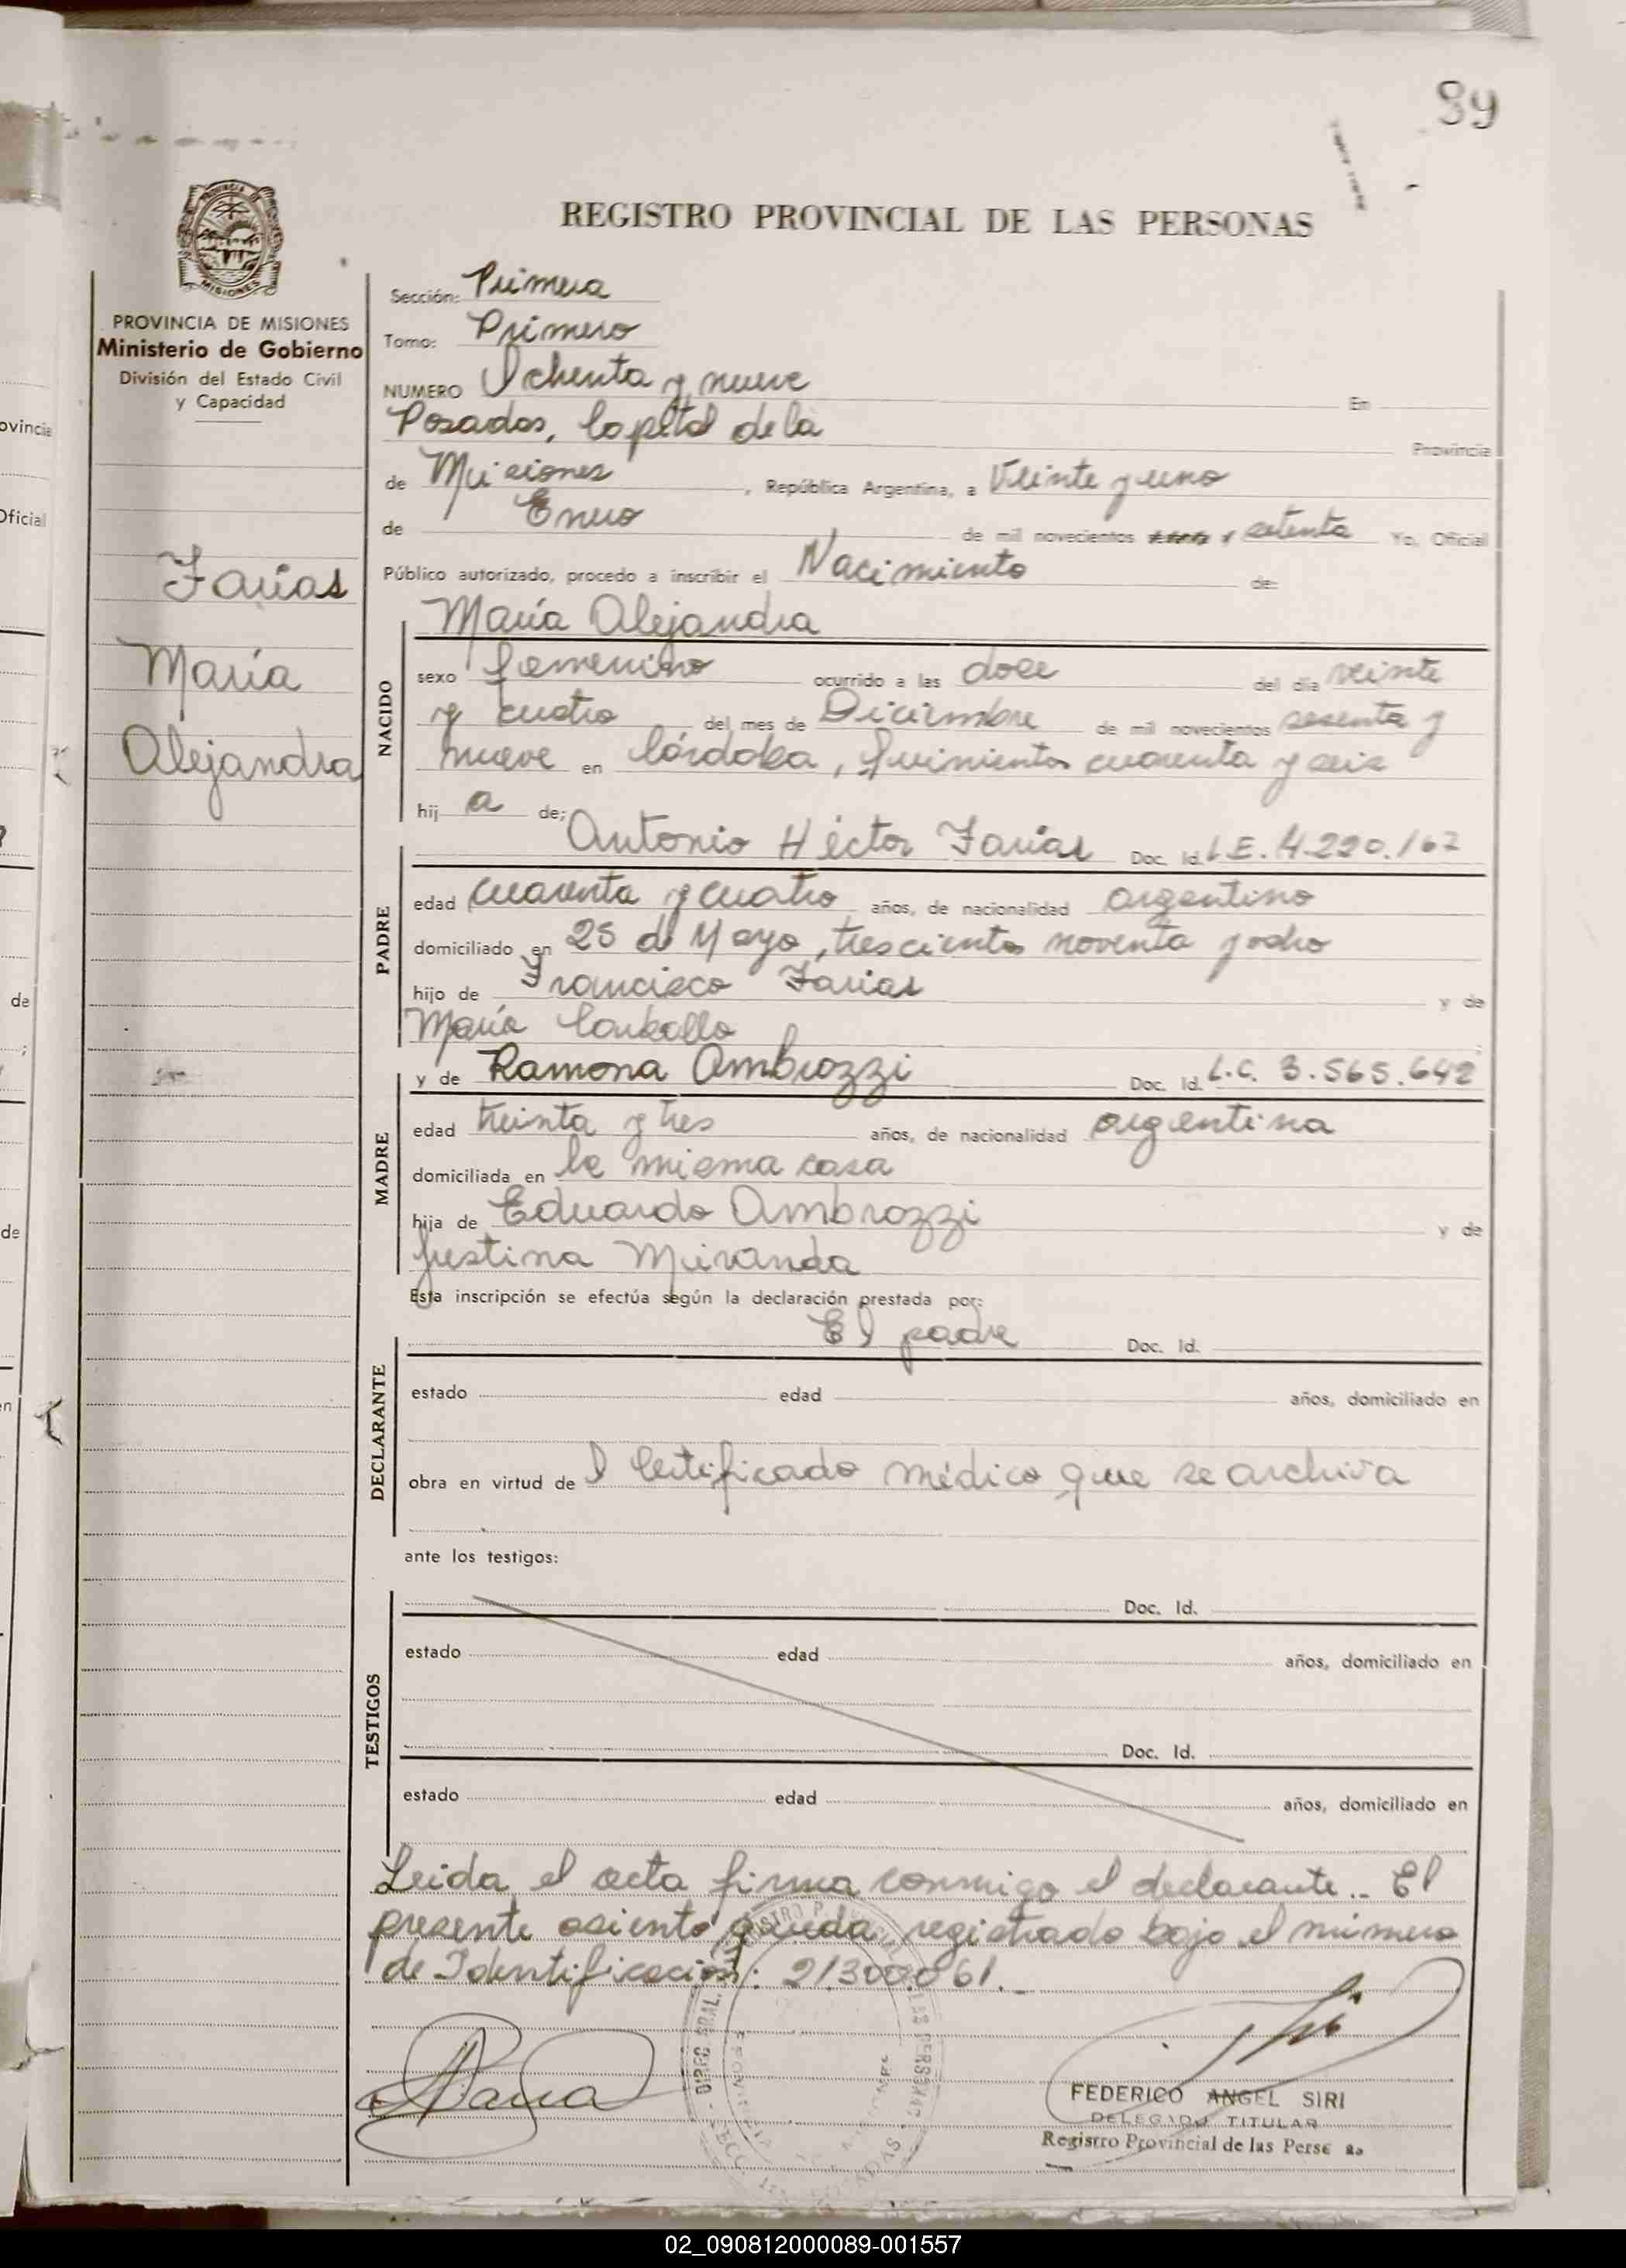 89
REGISTRO PROVINCIAL DE LAS PERSONAS
PROVINCIA DE MISIONES
Ministerio de Gobierno
División del Estado Civil
y Capacidad
Farias
María
Alejandra
Sección: Primera
Tomo: Primero
NUMERO Ochenta y nueve En
Posadas, Capital de la Provincia
de Misiones, República Argentina, a Veinte y uno
de Enero de mil novecientos setenta Yo, Oficial
Público autorizado, procedo a inscribir el Nacimiento de:
NACIDO
María Alejandra
sexo femenino ocurrido a las doce del día veinte
y cuatro del mes de Diciembre de mil novecientos sesenta y
nueve en Córdoba, quinientos cuarenta y seis
hij a de:
PADRE
Antonio Héctor Farías Doc. Id. L.E. 4.220.167
edad cuarenta y cuatro años, de nacionalidad argentino
domiciliado en 25 de Mayo, trescientos noventa y ocho
hijo de Francisco Farias y de
María Carballo
MADRE
y de Ramona Ambrozzi Doc. Id. L.C. 3.565.642
edad treinta y tres años, de nacionalidad argentina
domiciliada en la misma casa
hija de Eduardo Ambrozzi y de
Justina Miranda
Esta inscripción se efectúa según la declaración prestada por:
DECLARANTE
El padre Doc. Id.
estado edad años, domiciliado en
obra en virtud de l Certificado médico que se archiva
ante los testigos:
TESTIGOS
Doc. Id.
estado edad años, domiciliado en
Doc. Id.
estado edad años, domiciliado en
Leida el acta firma conmigo el declarante.. El
presente asiento queda registrado bajo el número
de Identificación: 21300061.
FEDERICO ANGEL SIRI
DELEGADO TITULAR
Registro Provincial de las Perse as
02_090812000089-001557